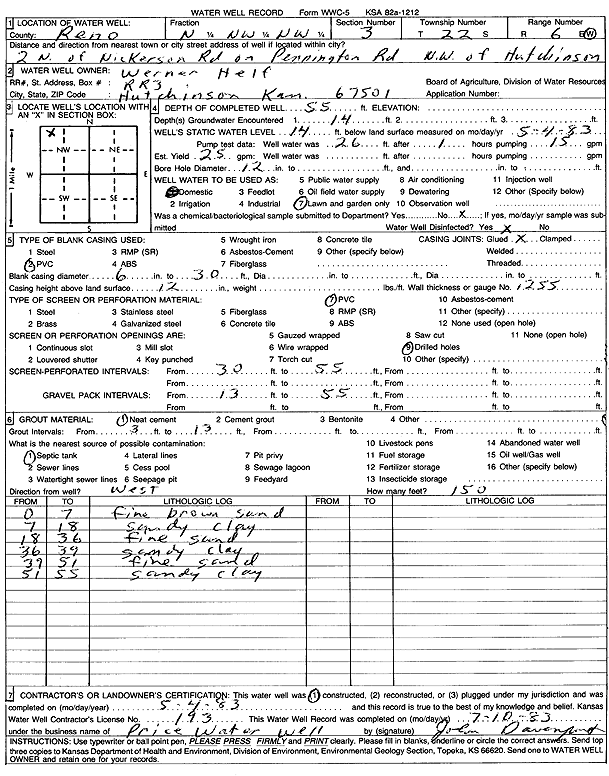 WATER WELL RECORD Form WWC-5 KSA 82a-1212
1 LOCATION OF WATER WELL: Fraction Section Number Township Number Range Number
County: Reno N ¼ NW ¼ NW ¼ 3 T 22 S R 6 E/W
Distance and direction from nearest town or city street address of well if located within city?
2 N. of Nickerson Rd on Pennington Rd N.W. of Hutchinson
2 WATER WELL OWNER: Werner Helf
RR#, St. Address, Box # : RR3, Board of Agriculture, Division of Water Resources
City, State, ZIP Code : Hutchinson Kan. 67501 Application Number:
3 LOCATE WELL'S LOCATION WITH AN "X" IN SECTION BOX:
N
X
NW NE
W E
SW SE
S
1 Mile
4 DEPTH OF COMPLETED WELL 55 ft. ELEVATION:
Depth(s) Groundwater Encountered 1. 14 ft. 2. ft. 3. ft.
WELL'S STATIC WATER LEVEL 14 ft. below land surface measured on mo/day/yr 5-4-83
Pump test data: Well water was 26 ft. after 1 hours pumping 15 gpm
Est. Yield 25 gpm: Well water was ft. after hours pumping gpm
Bore Hole Diameter 12 in. to ft., and in. to ft.
WELL WATER TO BE USED AS: 5 Public water supply 8 Air conditioning 11 Injection well
Domestic 3 Feedlot 6 Oil field water supply 9 Dewatering 12 Other (Specify below)
2 Irrigation 4 Industrial 7 Lawn and garden only 10 Observation well
Was a chemical/bacteriological sample submitted to Department? Yes No X ; If yes, mo/day/yr sample was sub-
mitted Water Well Disinfected? Yes X No
5 TYPE OF BLANK CASING USED: 5 Wrought iron 8 Concrete tile CASING JOINTS: Glued X Clamped
1 Steel 3 RMP (SR) 6 Asbestos-Cement 9 Other (specify below) Welded
2 PVC 4 ABS 7 Fiberglass Threaded
Blank casing diameter 6 in. to 30 ft., Dia in. to ft., Dia in. to ft.
Casing height above land surface 12 in., weight lbs./ft. Wall thickness or gauge No. 1255
TYPE OF SCREEN OR PERFORATION MATERIAL: 7 PVC 10 Asbestos-cement
1 Steel 3 Stainless steel 5 Fiberglass 8 RMP (SR) 11 Other (specify)
2 Brass 4 Galvanized steel 6 Concrete tile 9 ABS 12 None used (open hole)
SCREEN OR PERFORATION OPENINGS ARE: 5 Gauzed wrapped 8 Saw cut 11 None (open hole)
1 Continuous slot 3 Mill slot 6 Wire wrapped 9 Drilled holes
2 Louvered shutter 4 Key punched 7 Torch cut 10 Other (specify)
SCREEN-PERFORATED INTERVALS: From 30 ft. to 55 ft., From ft. to ft.
From ft. to ft., From ft. to ft.
GRAVEL PACK INTERVALS: From 13 ft. to 55 ft., From ft. to ft.
From ft. to ft., From ft. to ft.
6 GROUT MATERIAL: 1 Neat cement 2 Cement grout 3 Bentonite 4 Other
Grout Intervals: From 3 ft. to 13 ft., From ft. to ft., From ft. to ft.
What is the nearest source of possible contamination: 10 Livestock pens 14 Abandoned water well
1 Septic tank 4 Lateral lines 7 Pit privy 11 Fuel storage 15 Oil well/Gas well
2 Sewer lines 5 Cess pool 8 Sewage lagoon 12 Fertilizer storage 16 Other (specify below)
3 Watertight sewer lines 6 Seepage pit 9 Feedyard 13 Insecticide storage
Direction from well? West How many feet? 150
FROM TO LITHOLOGIC LOG FROM TO LITHOLOGIC LOG
0 7 fine brown sand
7 18 sandy clay
18 36 fine sand
36 39 sandy clay
39 51 fine sand
51 55 sandy clay
7 CONTRACTOR'S OR LANDOWNER'S CERTIFICATION: This water well was (1) constructed, (2) reconstructed, or (3) plugged under my jurisdiction and was
completed on (mo/day/year) 5-4-83 and this record is true to the best of my knowledge and belief. Kansas
Water Well Contractor's License No. 193 This Water Well Record was completed on (mo/day/yr) 7-10-83
under the business name of Price Water Well by (signature) John Davenport
INSTRUCTIONS: Use typewriter or ball point pen, PLEASE PRESS FIRMLY and PRINT clearly. Please fill in blanks, underline or circle the correct answers. Send top
three copies to Kansas Department of Health and Environment, Division of Environment, Environmental Geology Section, Topeka, KS 66620. Send one to WATER WELL
OWNER and retain one for your records.